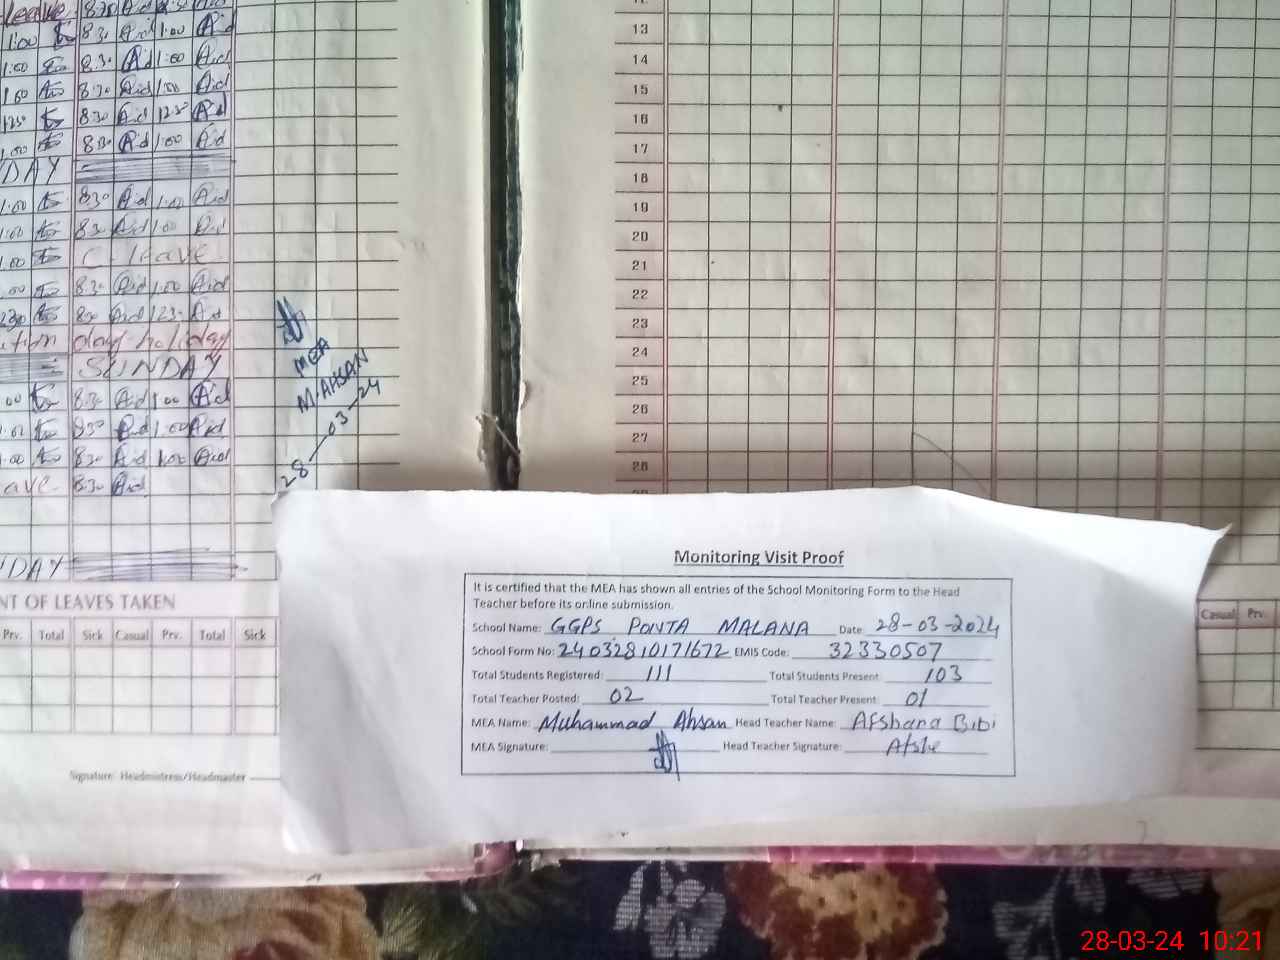 leave 8:30 Aid
1:00 8:30 Aid 1:00 Aid
1:00 8:30 Aid 1:00 Aid
1:00 8:30 Aid 1:00 Aid
8:30 Aid 12:30 Aid
1:00 8:30 Aid 1:00 Aid
DAY
1:00 8:30 Aid 1:00 Aid
1:00 8:30 Aid 1:00 Aid
1:00 C. leave
00 8:30 Aid 1:00 Aid
230 Aid 1230 Aid
day holiday
SUNDAY
00 8:30 Aid 1:00 Aid
1:00 8:30 Aid 1:00 Aid
1:00 8:30 Aid 1:00 Aid
ave 8:30 Aid
DAY
MEA
M.AHSAN
28-03-24
NT OF LEAVES TAKEN
Prv. Total Sick Casual Prv. Total Sick
Signature: Headmistress/Headmaster
13
14
15
16
17
18
19
20
21
22
23
24
25
26
27
28
Casual Prv.
Monitoring Visit Proof
It is certified that the MEA has shown all entries of the School Monitoring Form to the Head
Teacher before its online submission.
School Name: GGPS PONTA MALANA Date 28-03-2024
School Form No: 24032810171672 EMIS Code: 32330507
Total Students Registered: 111 Total Students Present 103
Total Teacher Posted: 02 Total Teacher Present: 01
MEA Name: Muhammad Ahsan Head Teacher Name: Afshana Bibi
MEA Signature: Head Teacher Signature: Afshe
28-03-24 10:21